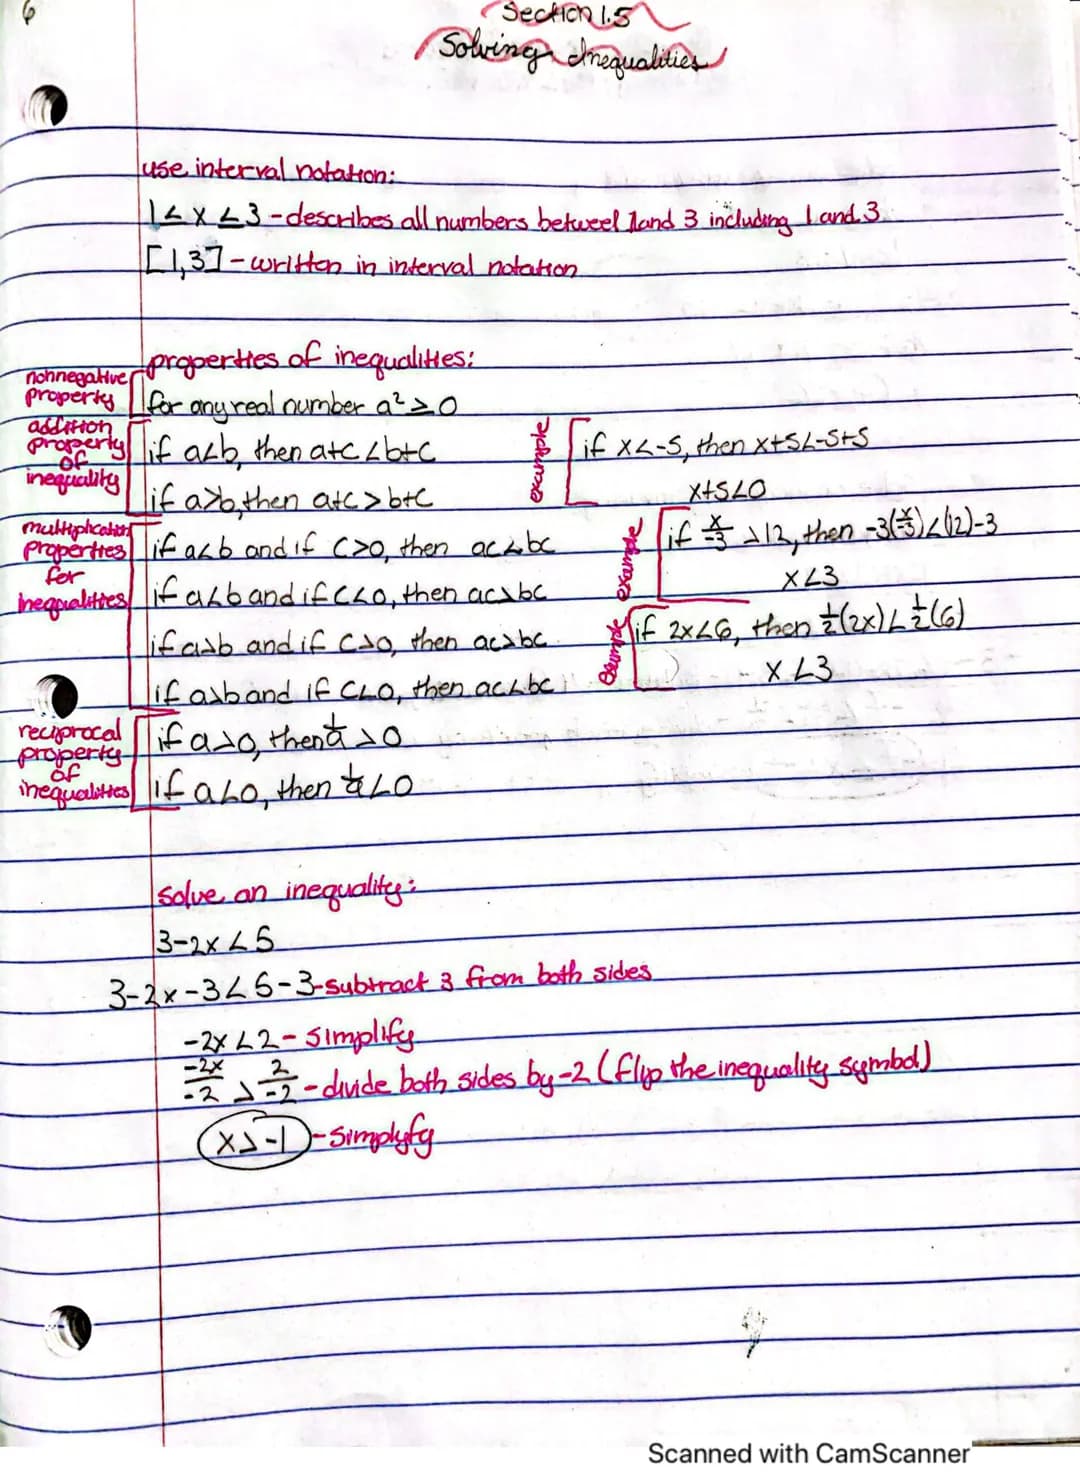 6
Section 1.5
Solving Inequalities
use interval notation:
1 ≤ x ≤ 3 - describes all numbers betweel 1 and 3 including 1 and 3
[1,3] - written in interval notation
properties of inequalities:
nonnegative property
for any real number a² ≥ 0
addition property of inequality
if a<b, then a+c < b+c
if a>b, then a+c > b+c
example
if x<-5, then x+5<-5+5
x+5<0
multiplication properties for inequalities
if a<b and if c>0, then ac<bc
if a<b and if c<0, then ac>bc
if a>b and if c>0, then ac>bc
if a>b and if c<0, then ac<bc
example
if x/-3 >12, then -3(x/-3)<(12)-3
x<3
example
if 2x<6, then 1/2(2x)<1/2(6)
x<3
reciprocal property of inequalities
if a>0, then 1/a >0
if a<0, then 1/a <0
solve an inequality:
3-2x<5
3-2x-3<5-3-subtract 3 from both sides
-2x<2-simplify
-2x/-2 > 2/-2 - divide both sides by -2 (flip the inequality symbol)
x>-1 - simplyfy
Scanned with CamScanner